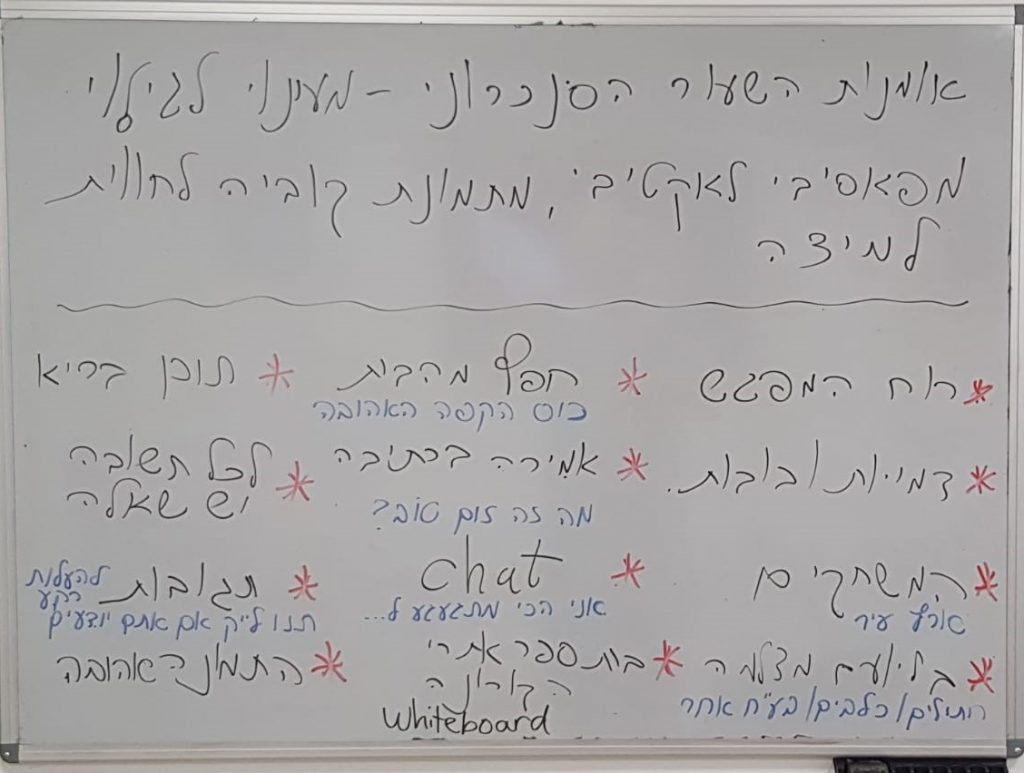 אומנות השעור הסנכרוני - מעינוי לגילוי
מפאסיבי לאקטיבי, מתמונת קוביה לחווית
למידה
* רוח המפגש
* דמויות/בובות.
* המשחקים
ארץ עיר
* מצלמה
חתולים/כלבים/בע"ח אחר
* חפץ מהבית
כוס הקפה האהובה
* אמירה בכתיבה
מה זה זום טוב?
* chat
אני הכי מתגעגע ל...
* בית ספר אחרי
הקורונה
Whiteboard
* תוכן בריא
* לכל תשובה
יש שאלה
* תגובות להעלות
רקע
תנו לייק אם אתם יודעים
* התמונה האהובה